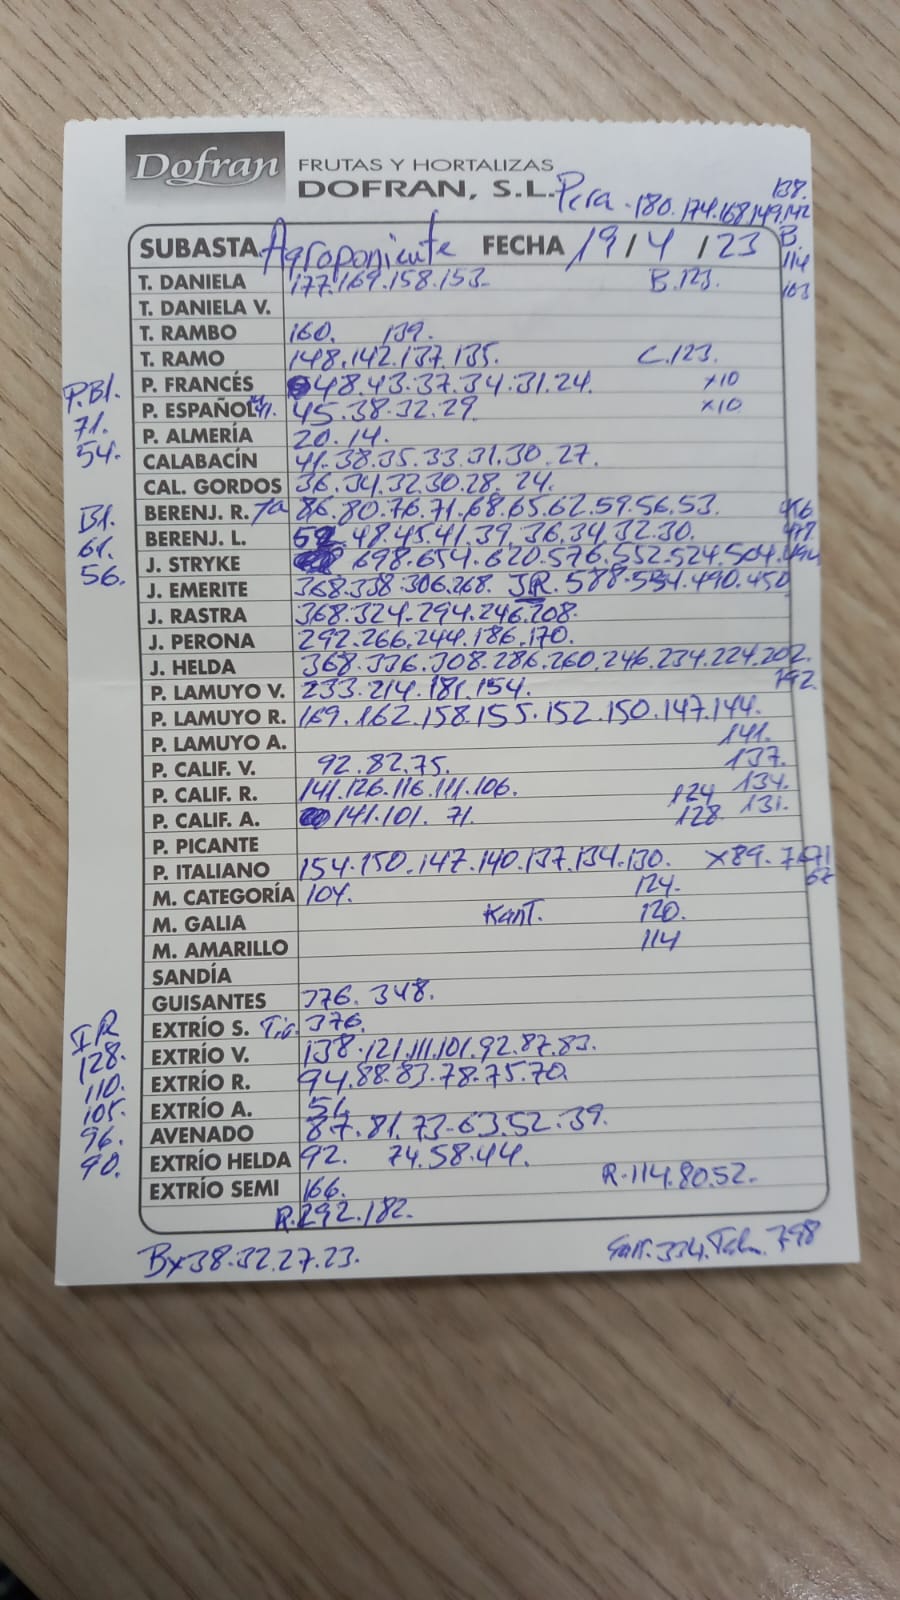 Dofran FRUTAS Y HORTALIZAS
DOFRAN, S.L. Pera. 180. 174. 168. 149. 142
138.
SUBASTA Agroponiente FECHA 19/4/23 B.
114
103
T. DANIELA 177. 169. 158. 153. B. 123.
T. DANIELA V.
T. RAMBO 160. 139.
T. RAMO 148. 142. 137. 135. C. 123.
P. FRANCÉS 48. 43. 37. 34. 31. 24. x10
P.Bl.
71.
54.
P. ESPAÑOL 45. 38. 32. 29. x10.
P. ALMERÍA 20. 14.
CALABACÍN 41. 38. 35. 33. 31. 30. 27.
CAL. GORDOS 36. 34. 32. 30. 28. 24.
BERENJ. R. 86. 80. 76. 71. 68. 65. 62. 59. 56. 53.
Bl.
61.
56.
BERENJ. L. 52. 48. 45. 41. 39. 36. 34. 32. 30.
J. STRYKE 698. 654. 620. 576. 552. 524. 504. 494
J. EMERITE 368. 338. 306. 268. JR. 588. 534. 490. 450
J. RASTRA 368. 324. 294. 246. 208.
J. PERONA 292. 266. 244. 186. 170.
J. HELDA 368. 336. 308. 286. 260. 246. 234. 224. 202.
192.
P. LAMUYO V. 233. 214. 181. 154.
P. LAMUYO R. 169. 162. 158. 155. 152. 150. 147. 144.
P. LAMUYO A. 141.
P. CALIF. V. 92. 82. 75. 137.
P. CALIF. R. 141. 126. 116. 111. 106. 124 134.
P. CALIF. A. 141. 101. 71. 128 131.
P. PICANTE
P. ITALIANO 154. 150. 147. 140. 137. 134. 130. x89. 76 71
67
M. CATEGORÍA 104. 124.
M. GALIA Kant. 120.
M. AMARILLO 114
SANDÍA
GUISANTES 376. 348.
EXTRÍO S. 376.
IR
128.
110.
105.
96.
90.
EXTRÍO V. 138. 121. 111. 101. 92. 87. 83.
EXTRÍO R. 94. 88. 83. 78. 75. 70.
EXTRÍO A.
AVENADO 87. 81. 73. 63. 52. 39.
EXTRÍO HELDA 92. 74. 58. 44.
EXTRÍO SEMI 166. R. 114. 80. 52.
R. 292. 182.
Bx38. 32. 27. 23. 334. 798